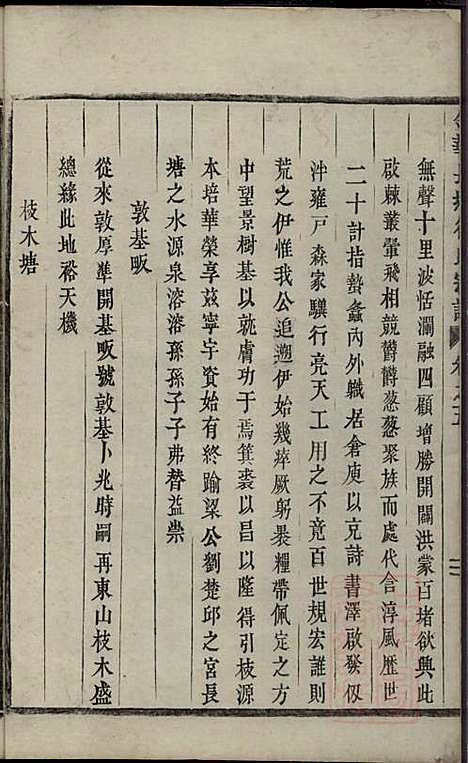 無聲十里波恬瀾融四顧增勝開闢洪蒙百堵欲興此
啟棘叢翬飛相競欝欝葱葱聚族而處代含淳風歷世
二十計指螽蟲內外職居倉庾以克詩書澤啟發伋
泮雍戸森家驥行亮天工用之不竟百世規宏誰則
荒之伊惟我公追遡伊始幾瘁厥躬褁糧帶佩定之方
中望景樹基以就膚功于焉箕裘以昌以隆得引枝源
本培華榮享茲寧宇資始有終踰梁公劉楚邱之宮長
塘之水源泉溶溶孫孫子子弗替益崇
敦基畈
從來敦厚準開基畈號敦基卜兆時嗣再東山枝木盛
總緣此地裕天機
枝木塘